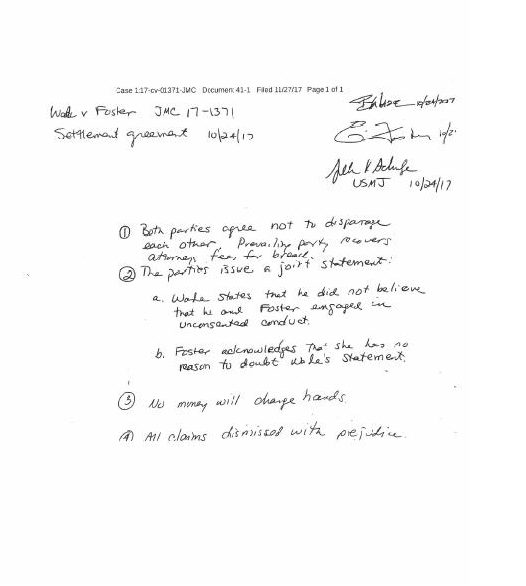 Case 1:17-cv-01371-JMC Document 41-1 Filed 11/27/17 Page 1 of 1
Wade v Foster JMC 17-1371
Settlement agreement 10/24/17
10/24/2017
10/2
USMJ 10/24/17
① Both parties agree not to disparage
each other. Prevailing party recovers
attorneys fees for breach.
② The parties issue a joint statement:
a. Wade states that he did not believe
that he and Foster engaged in
unconsented conduct.
b. Foster acknowledges that she has no
reason to doubt Wade's statement.
③ No money will change hands.
④ All claims dismissed with prejudice.